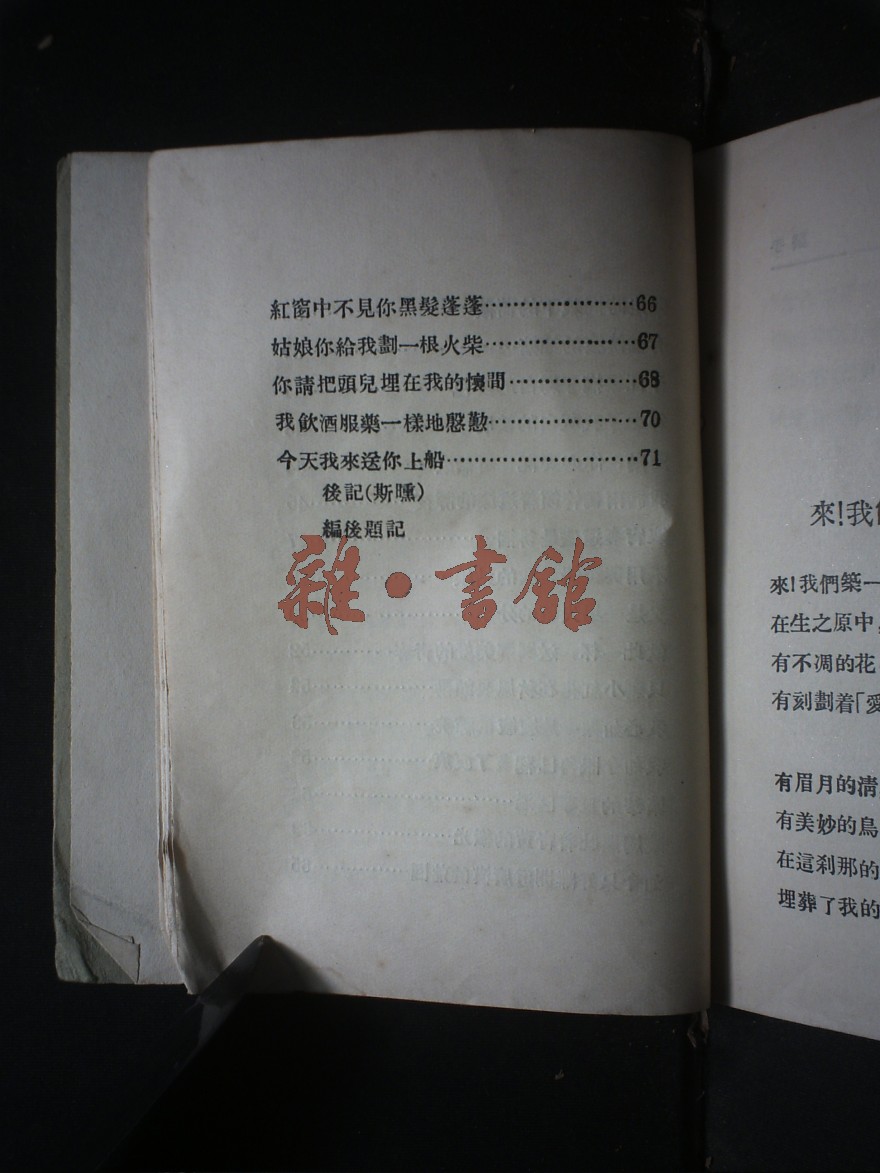 紅窗中不見你黑髮蓬蓬…………………66
姑娘你給我劃一根火柴…………………67
你請把頭兒埋在我的懷間………………68
我飲酒服藥一樣地慇懃…………………70
今天我來送你上船………………………71
後記(斯曛)
編後題記
雜·書館
來!我
來!我們築一
在生之原中,
有不凋的花
有刻劃着「愛
有眉月的清
有美妙的鳥
在這刹那的
埋葬了我的